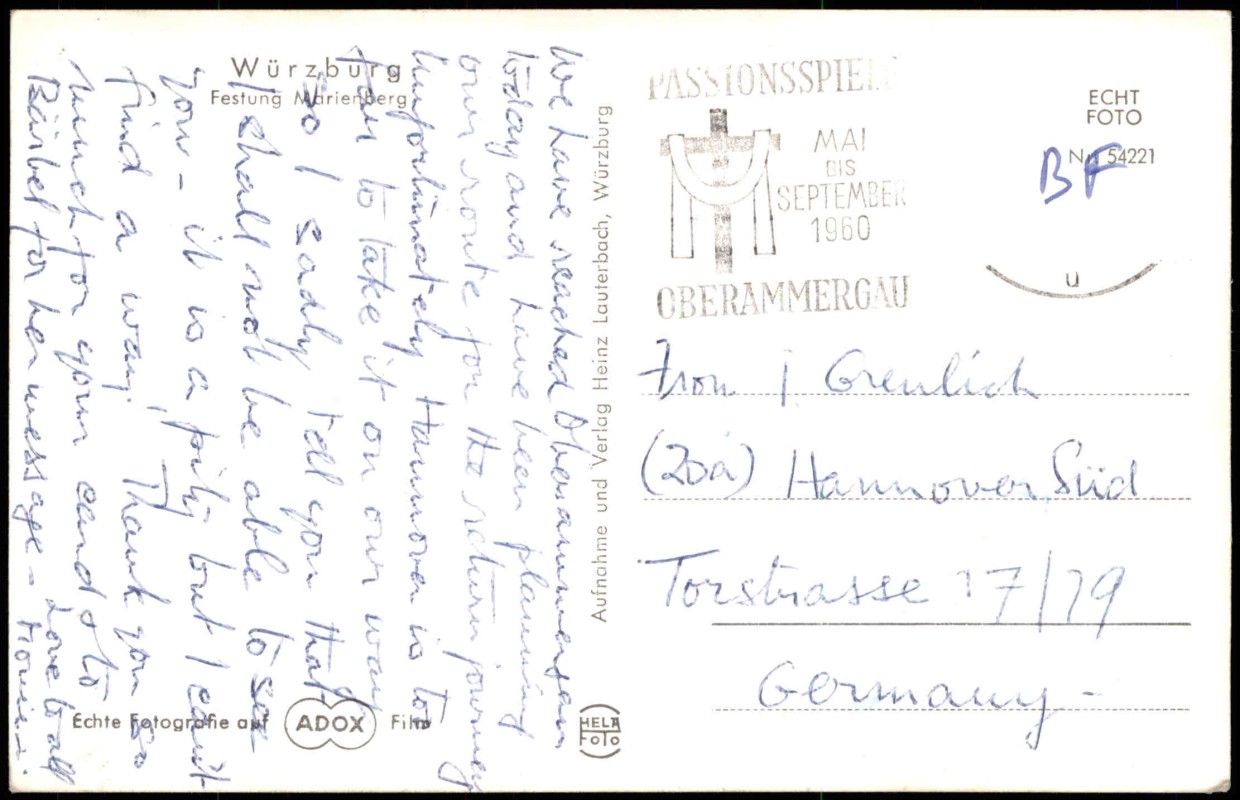 Würzburg
Festung Marienberg
We have reached Oberammergau
today and have been planning
our route for the return journey
Unfortunately Hannover is to
far to take it on our way
So I sadly tell you that
I shall not be able to see
you - it is a pity but I can't
find a way. Thank you so
much for your card & to
Bärbel for her message - Love to all
Aufnahme und Verlag Heinz Lauterbach, Würzburg
Echte Fotografie auf ADOX Film
HELA
FOTO
PASSIONSSPIELE
MAI
BIS
SEPTEMBER
1960
OBERAMMERGAU
ECHT
FOTO
Nr. 54221
BF
u
Frau I Greulich
(20a) Hannover Süd
Torstrasse 17/19
Germany -